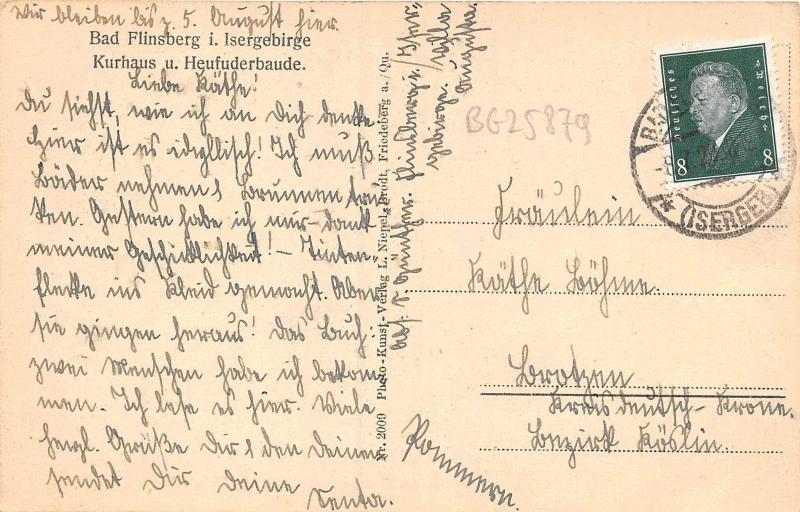 Wir bleiben bis z. 5. August hier.
Bad Flinsberg i. Isergebirge
Kurhaus u. Heufuderbaude.
Liebe Käthe!
Du siehst, wie ich an Dich denke.
Hier ist es idyllisch! Ich muß
Bäder nehmen, Brunnen trin-
ken. Gestern habe ich mir dank
meiner Geschicklichkeit! – Tinten-
flecke ins Kleid gemacht. Aber
sie gingen heraus! Das Buch:
zwei Menschen habe ich bekom-
men. Ich lese es hier. Viele
herzl. Grüße Dir u. den Deinen
sendet Dir Deine
Senta.
Nr. 2009 Photo-Kunst-Verlag L. Niepel, Brodt, Friedeberg a./Qu.
Abs. S. Günther. Flinsberg i./Iser-
gebirge. Villa
Augusta.
BG25879
Deutsches Reich
8 8
BAD
(ISERGEB)
Fräulein
Käthe Böhme
Brotzen
Kreis Deutsch-Krone.
Bezirk Köslin.
Pommern.